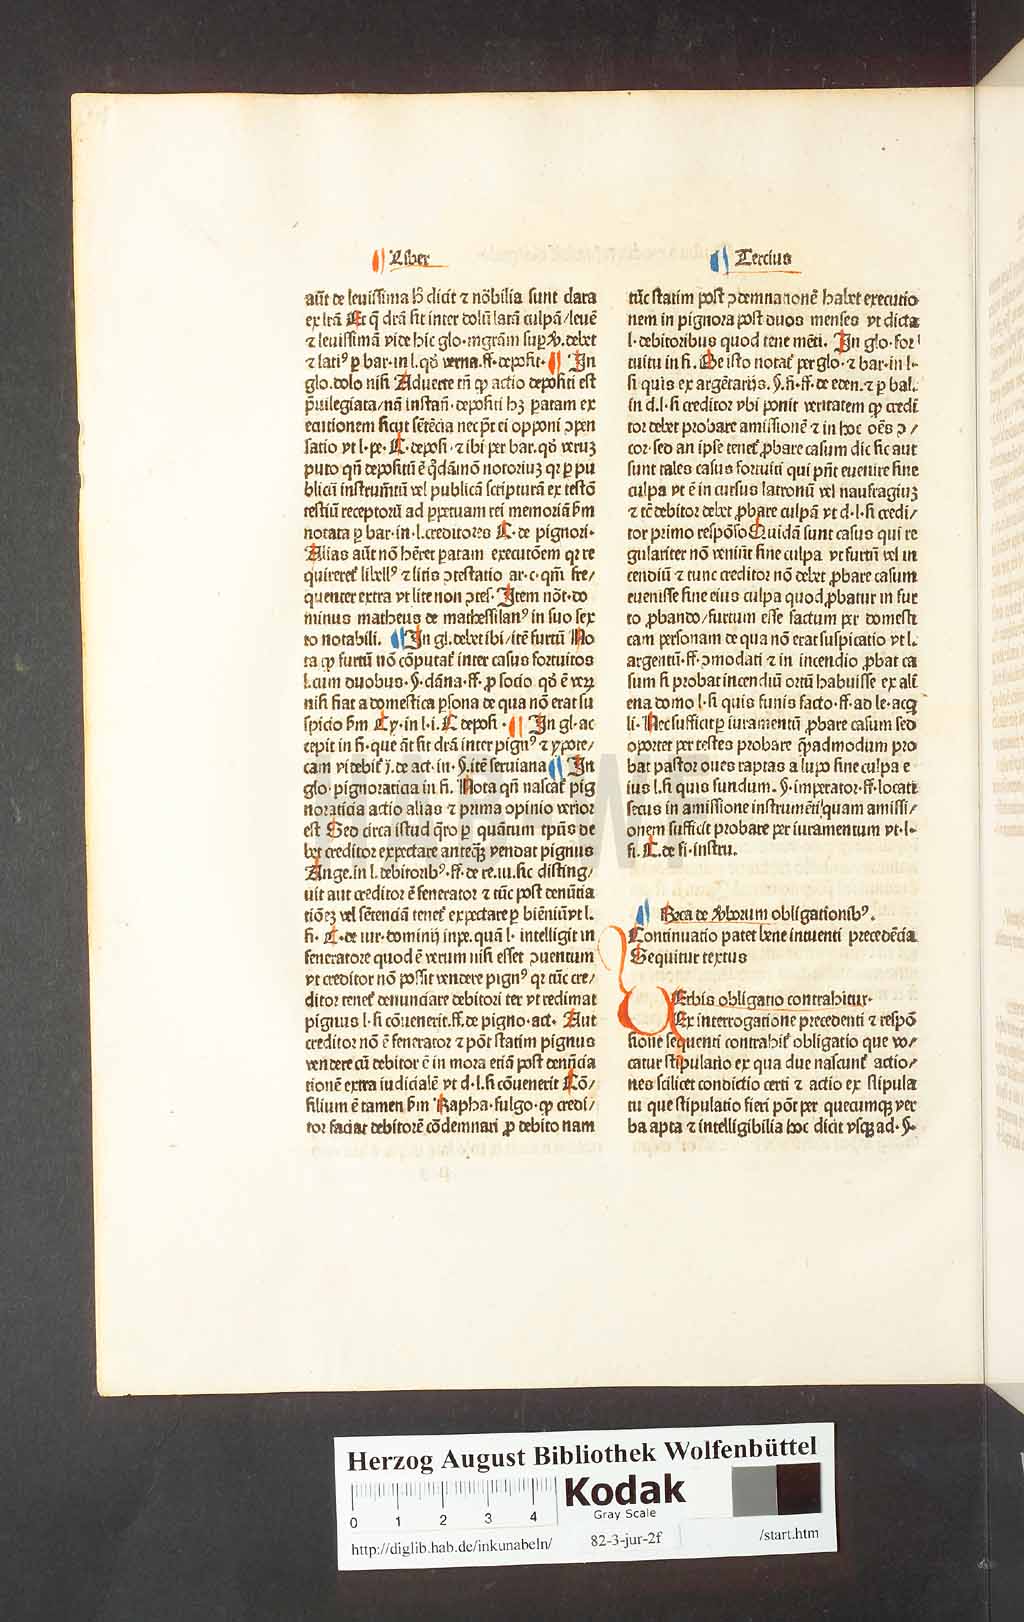 Liber
Tercius
aūt de leuissima hō dicit ⁊ nōbilia sunt data
ex lrā Et q̄ drā sit inter dolū latā culpā/leuē
⁊ leuissimā vide hic glo· mgrām sup debet
⁊ latiꝰ ꝑ bar·in l.qđ verna.ff·deposit· In
glo.dolo nisi Aduerte tn̄ ꝙ actio depositi est
p̄uilegiata/nā instan̄·depositi hꝫ ꝑatam ex
ecutionem sicut sētēcia nec pr̄t ei opponi ↄpen
satio vt l·pe· C·deposi·⁊ ibi per bar.qđ veruꝫ
puto qn̄ depositū ē q̄ddāmō notoriuꝫ qꝛ ꝑ pu
blicū instrumētū vel publicā scripturā ex testō
restiū receptorū ad ꝑpetuam rei memoriā ẜm
notata ꝑ bar·in·l.creditores C·de pignori·
Alias aūt nō hēret ꝑatam executōem qꝛ re
quireret̉ libellꝰ ⁊ litis ↄtestatio ar·c·qm̄ fre/
quenter extra vt lite non ↄtes· Item nōt·do
minus matheus de mathessilanꝰ in suo sex
to notabili. In gl.debet ibi/itē furtū No
ta ꝙ furtū nō cōputat̉ inter casus fortuitos
l.cum duobus·§·dāna·ff·ꝓ socio qđ ē veꝝ
nisi fiat a domestica ꝑsona de qua nō erat su
spicio ẜm Cy·in l·i. C deposi· In gl·ac
cepit in fi·que āt sit drā inter pignꝰ ⁊ ypote/
cam videbit̉ j·de act·in·§·itē seruiana In
glo·pignoraticia in fi. Nota qn̄ nascat̉ pig
noraticia actio alias ⁊ prima opinio verior
est Sed circa istud q̄ro ꝑ quātum tp̄us de
bet creditor expectare anteqꝫ vendat pignus
Ange.in l.debitoribꝰ·ff·de re.iu.sic disting/
uit aut creditor ē fenerator ⁊ tūc post denūtia
tiōeꝫ vel sētenciā tenet̉ expectare ꝑ biēniū vt l.
fi· C·de iur·dominij inpe.quā l· intelligit in
feneratore quod ē verum nisi esset ↄuentum
vt creditor nō possit vendere pignꝰ qꝛ tūc cre/
ditor tenet̉ denunciare debitori ter vt redimat
pignus l·si cōuenerit.ff.de pigno·act· Aut
creditor nō ē fenerator ⁊ pōt statim pignus
vendere cū debitor ē in mora etiā post denūcia
tionē extra iudicialē vt d·l.si cōuenerit Cō/
silium ē tamen ẜm Rapha·fulgo·ꝙ credi/
tor faciat debitorē cōdemnari ꝓ debito nam
tūc statim post ↄdemnationē habet executio
nem in pignora post duos menses vt dicta
l·debitoribus quod tene mēti. In glo·for
tuitu in fi. De isto notat̉ per glo·⁊ bar·in·l·
si quis ex argētarijs.§.fi·ff·de eden.⁊ ꝑ bal.
in d.l·si creditor vbi ponit veritatem ꝙ credi
tor debet probare amissionē ⁊ in hoc oēs ↄ/
cor·sed an ipse tenet̉ ꝓbare casum dic sic aut
sunt tales casus fortuiti qui pn̄t euenire sine
culpa vt ē in cursus latronū vel naufragiuꝫ
⁊ tc̄ debitor debet ꝓbare culpā vt d·l·si credi/
tor primo respōso Quidā sunt casus qui re
gulariter nō veniūt sine culpa vt furtū vel in
cendiū ⁊ tunc creditor nō debet ꝓbare casum
euenisse sine eius culpa quod ꝓbatur in fur
to ꝓbando/furtum esse factum per domesti
cam personam de qua nō erat suspicatio vt l.
argentū·ff·ↄmodati ⁊ in incendio ꝓbat ca
sum si probat incendiū ortū habuisse ex ali
ena domo l·si quis fumis facto·ff·ad le·acq
li· Nec sufficit ꝑ iuramentū ꝓbare casum sed
oportet per testes probare q̄admodum pro
bat pastor oues raptas a lupo sine culpa e
ius l.si quis fundum. §·imperator·ff·locati
secus in amissione instrumēti/quam amissi/
onem sufficit probare per iuramentum vt·l·
fi. C.de fi·instru.
Bℓca de ꝟborum obligationibꝰ.
Continuatio patet bene intuenti precedēcia
Sequitur textus
VErbis obligatio contrahitur·
Ex interrogatione precedenti ⁊ respō
sione sequenti contrahit̉ obligatio que vo/
catur stipulatio ex qua due nascunt̉ actio/
nes scilicet condictio certi ⁊ actio ex stipula
tu que stipulatio fieri pōt per quecumqꝫ ver
ba apta ⁊ intelligibilia hoc dicit vsqꝫ ad·§·
HAB WF
Herzog August Bibliothek Wolfenbüttel
0 1 2 3 4
Kodak
Gray Scale
http://diglib.hab.de/inkunabeln/ 82-3-jur-2f /start.htm